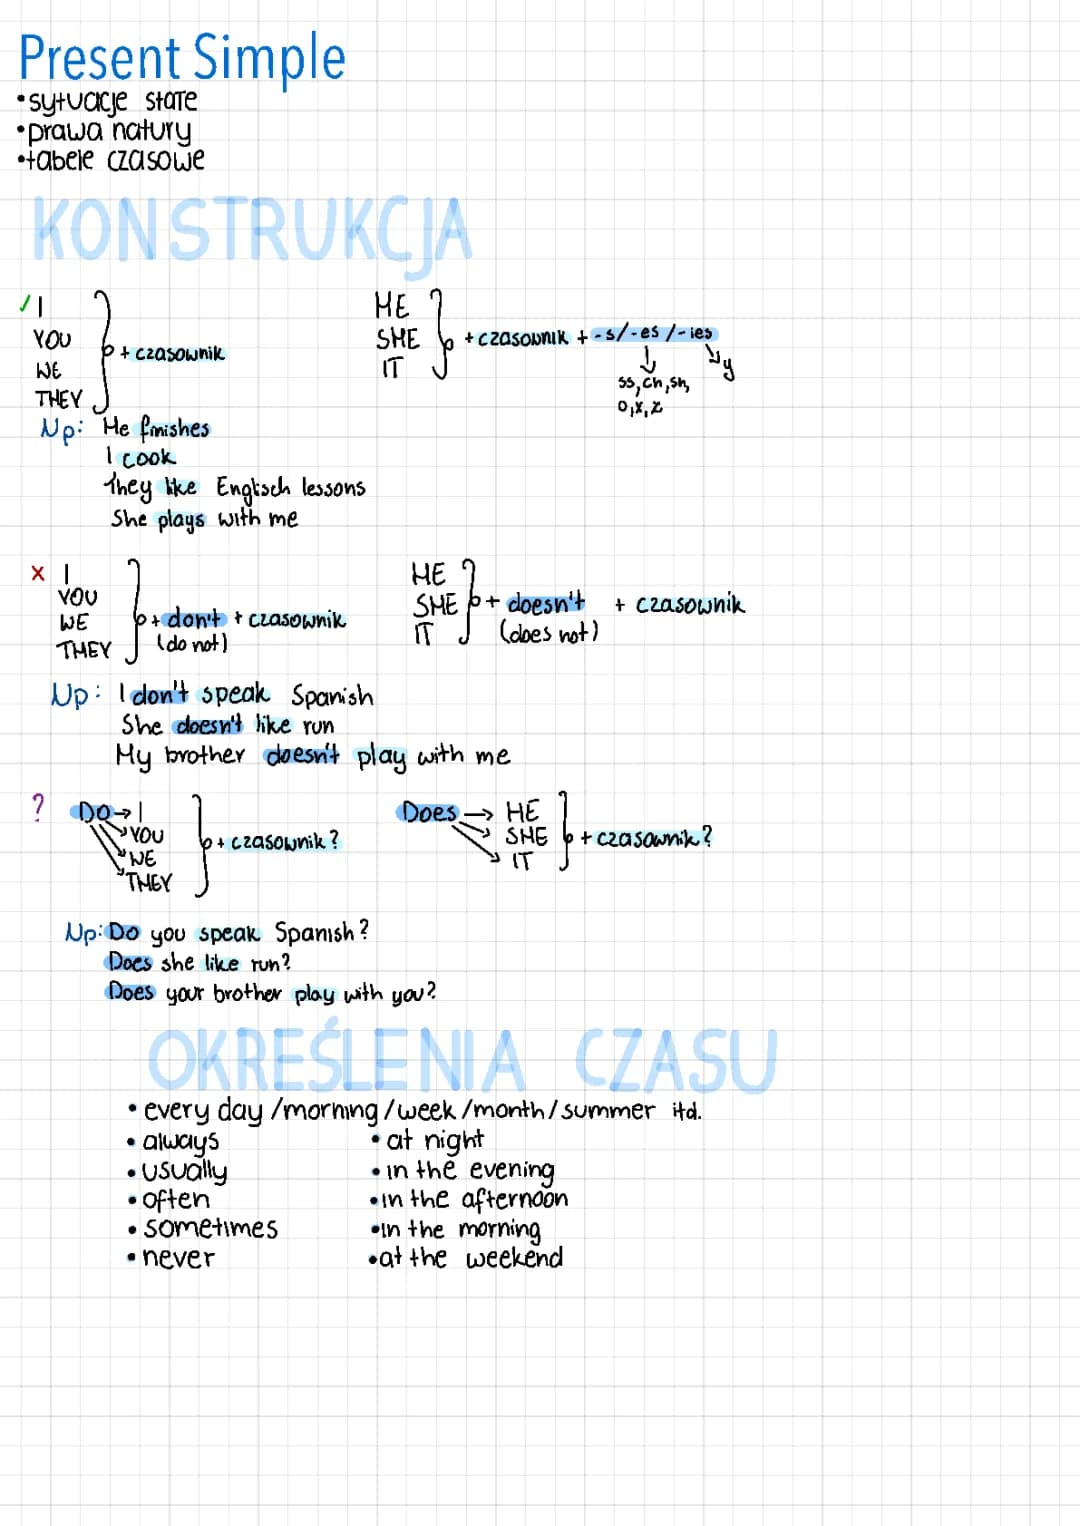 Present Simple
•sytuacje stałe
•prawa natury
•tabele czasowe
KONSTRUKCJA
✓ I
YOU
WE
THEY
+ czasownik
HE
SHE
IT
+ czasownik + -s/-es/-ies
ss, ch, sh,
o, x, z
y
Np: He finishes
I cook
They like Englisch lessons
She plays with me
x I
YOU
WE
THEY
+ don't + czasownik
(do not)
HE
SHE
IT
+ doesn't + czasownik
(does not)
Np: I don't speak Spanish
She doesn't like run
My brother doesn't play with me
? Do → I
YOU
WE
THEY
+ czasownik?
Does → HE
SHE
IT
+ czasownik?
Np: Do you speak Spanish?
Does she like run?
Does your brother play with you?
OKREŚLENIA CZASU
• every day /morning /week /month/ summer itd.
• always
• usually
• often
• sometimes
• never
• at night
• in the evening
• in the afternoon
• in the morning
• at the weekend